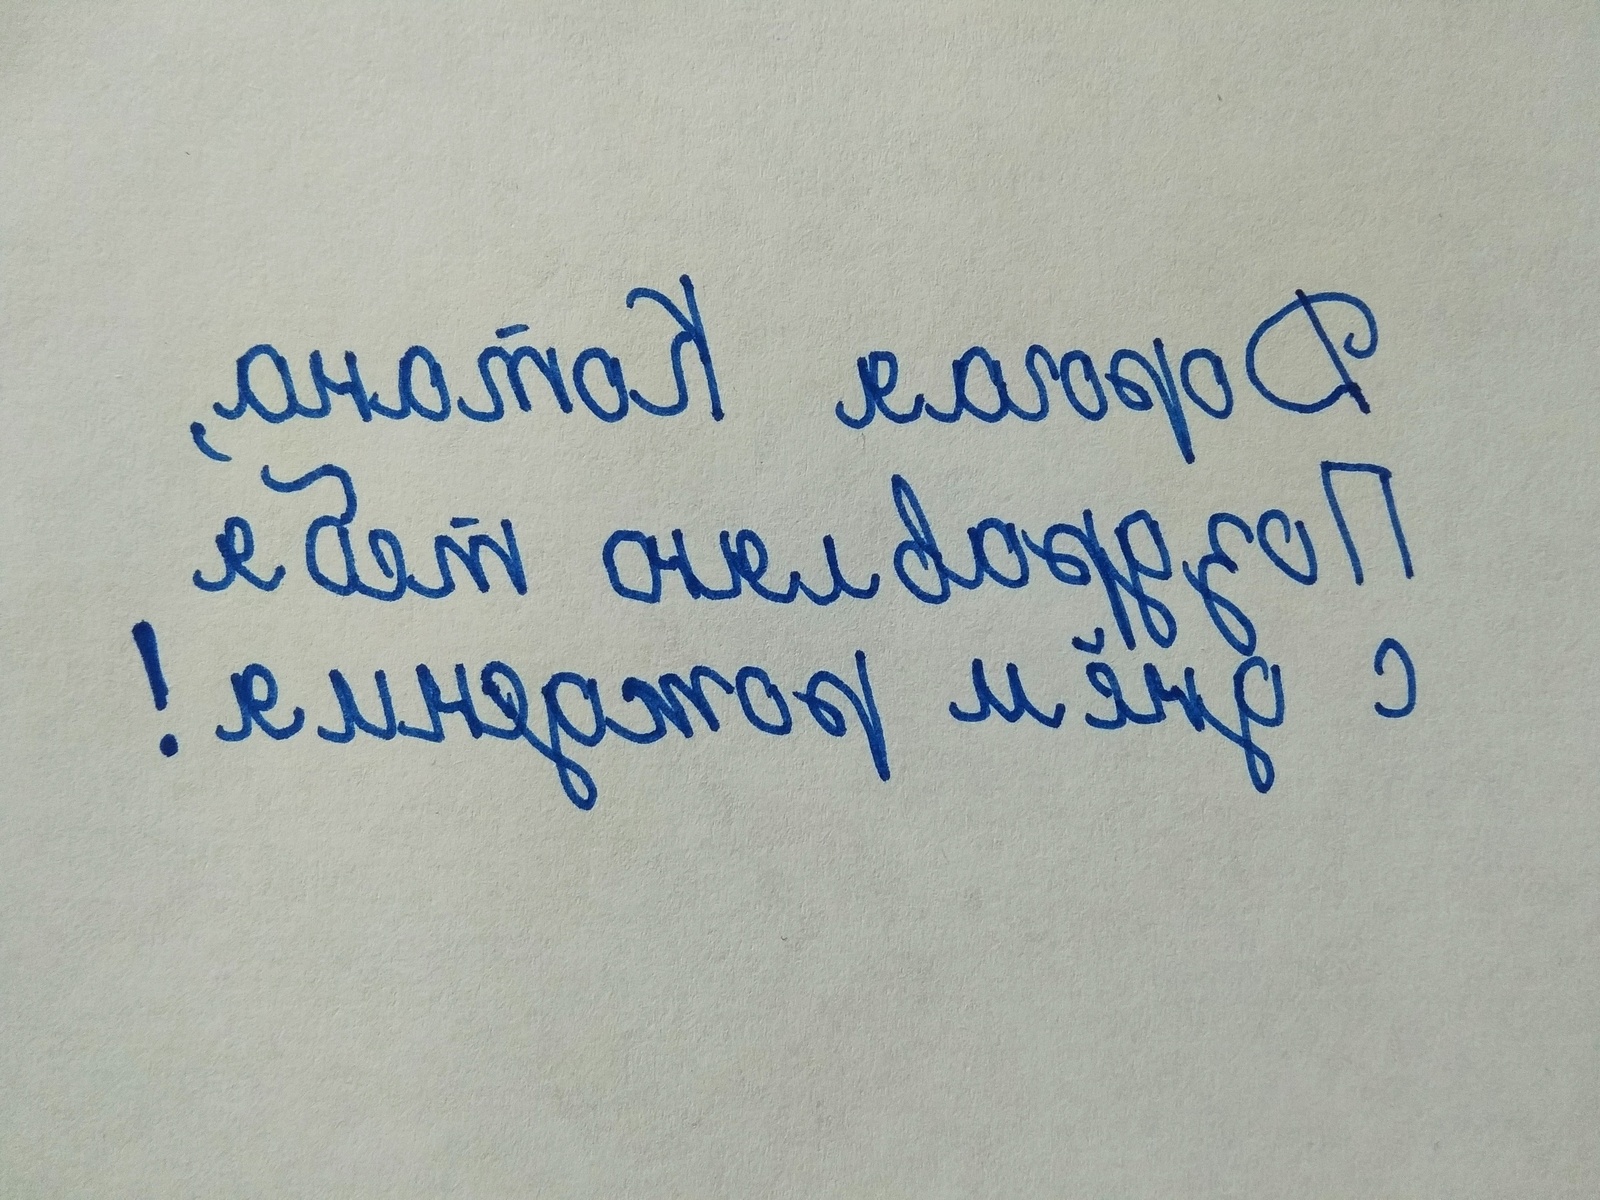 Дорогая Котана,
Поздравляю тебя
с днём рождения!